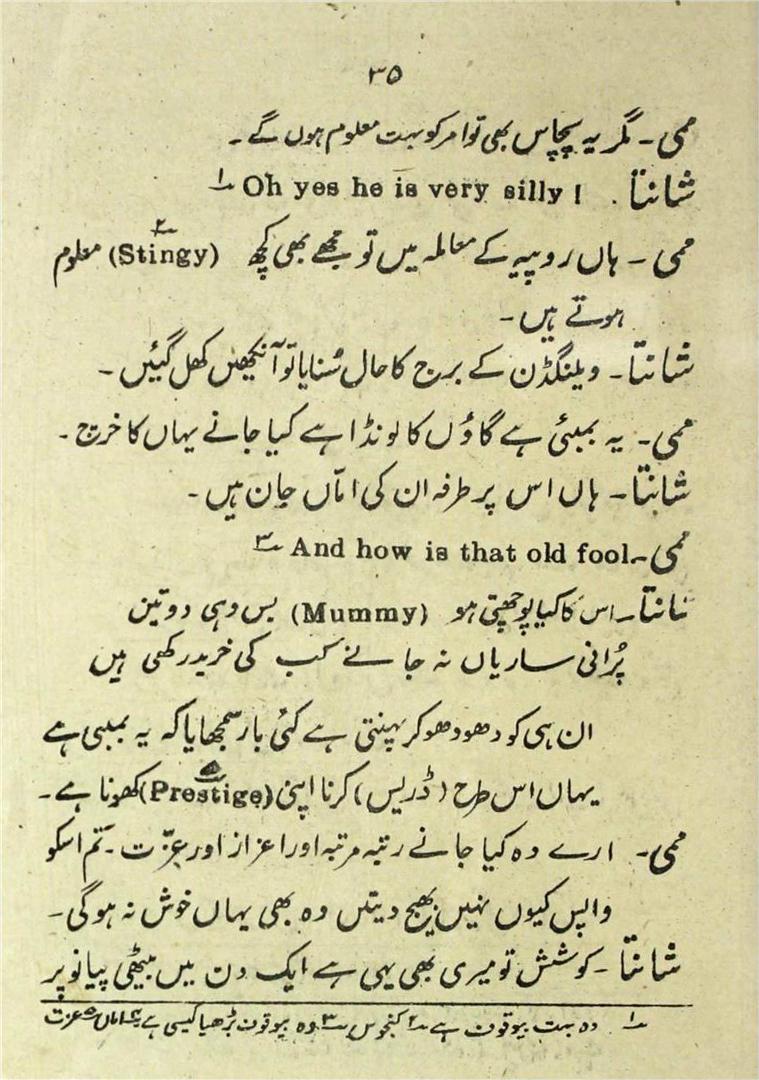 ۳۵
ممی۔ مگر یہ پچاس بھی تو امر کو بہت معلوم ہوں گے۔
شانتا۔ Oh yes he is very silly! ۱؎
ممی۔ ہاں روپیہ کے معاملہ میں تو مجھے بھی کچھ (Stingy) ۲؎ معلوم
ہوتے ہیں۔
شانتا۔ ویلنگڈن کے برج کا حال سُنایا تو آنکھیں کھل گئیں۔
ممی۔ یہ بمبئی ہے گاؤں کا لونڈا ہے کیا جانے یہاں کا خرچ۔
شانتا۔ ہاں اس پر طرفہ ان کی اماّں جان ہیں۔
ممی۔ And how is that old fool ۳؎
شانتا۔ اس کا کیا پوچھتی ہو (Mummy) بس وہی دو تین
پُرانی ساریاں نہ جانے کب کی خرید رکھی ہیں
ان ہی کو دھو دھو کر پہنتی ہے کئی بار سمجھایا کہ یہ بمبئی ہے
یہاں اس طرح (ڈریس) کرنا اپنی (Prestige) ۵؎ کھونا ہے۔
ممی۔ ارے وہ کیا جانے رتبہ مرتبہ اور اعزاز اور عزّت۔ تم اسکو
واپس کیوں نہیں بھیج دیتیں وہ بھی یہاں خوش نہ ہوگی۔
شانتا۔ کوشش تو میری بھی یہی ہے ایک دن میں بیٹھی پیانو پر
۱؎ وہ بہت بیوقوف ہے ۲؎ کنجوس ۳؎ وہ بیوقوف بڑھیا کیسی ہے ۴؎ اماں ۵؎ عزت